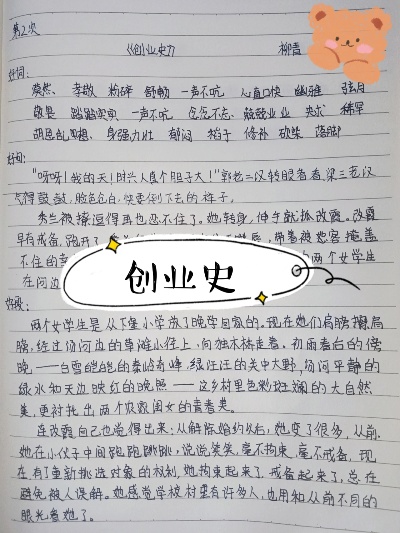 第2次
《创业史》 柳青
好词:
孝敬 粉碎 舒畅 一声不吭 心直口快 幽雅 弦月
敬畏 踏踏实实 一声不吭 念念不忘 兢兢业业 央求 稀罕
胡思乱想、身强力壮 郁闷 稍于 修补 砍柴 落脚
好句:
"呀呀!我的天!时兴人真个胆子大!"郭老二汉转眼看看梁三老汉
气得鼓鼓,脸色苍白,快要倒下去的样子。
秀兰被撩逗得再也忍不住了。她转身,伸手就抓改霞。改霞
早有戒备,跑开了
带着被悲容掩盖
不住的
两个女学生
在问
创业史
好段:
两个女学生是从下堡小学放了晚学回家的。现在她们肩膀擦肩
膀,经过汤河边的草滩小径上,向独木桥走着。初雨春后的傍
晚,——白雪皑皑的秦岭奇峰,绿汪汪的关中大野,汤河平静的
绿水和天边映红的晚照——这乡村里色彩斑斓的大自然
美,更衬托出两个农家闺女的青春美。
连改霞自己也觉得出来:从解除婚约以后,她变了很多,从前,
她在小伙子中间跑跑跳跳,说说笑笑,毫不拘束,毫不戒备,现
在,有了重新挑选对象的权利,她拘束起来了,戒备起来了,总在
避免被人误解。她感觉学校村里有许多人,也用和从前不同的
眼光看她了。